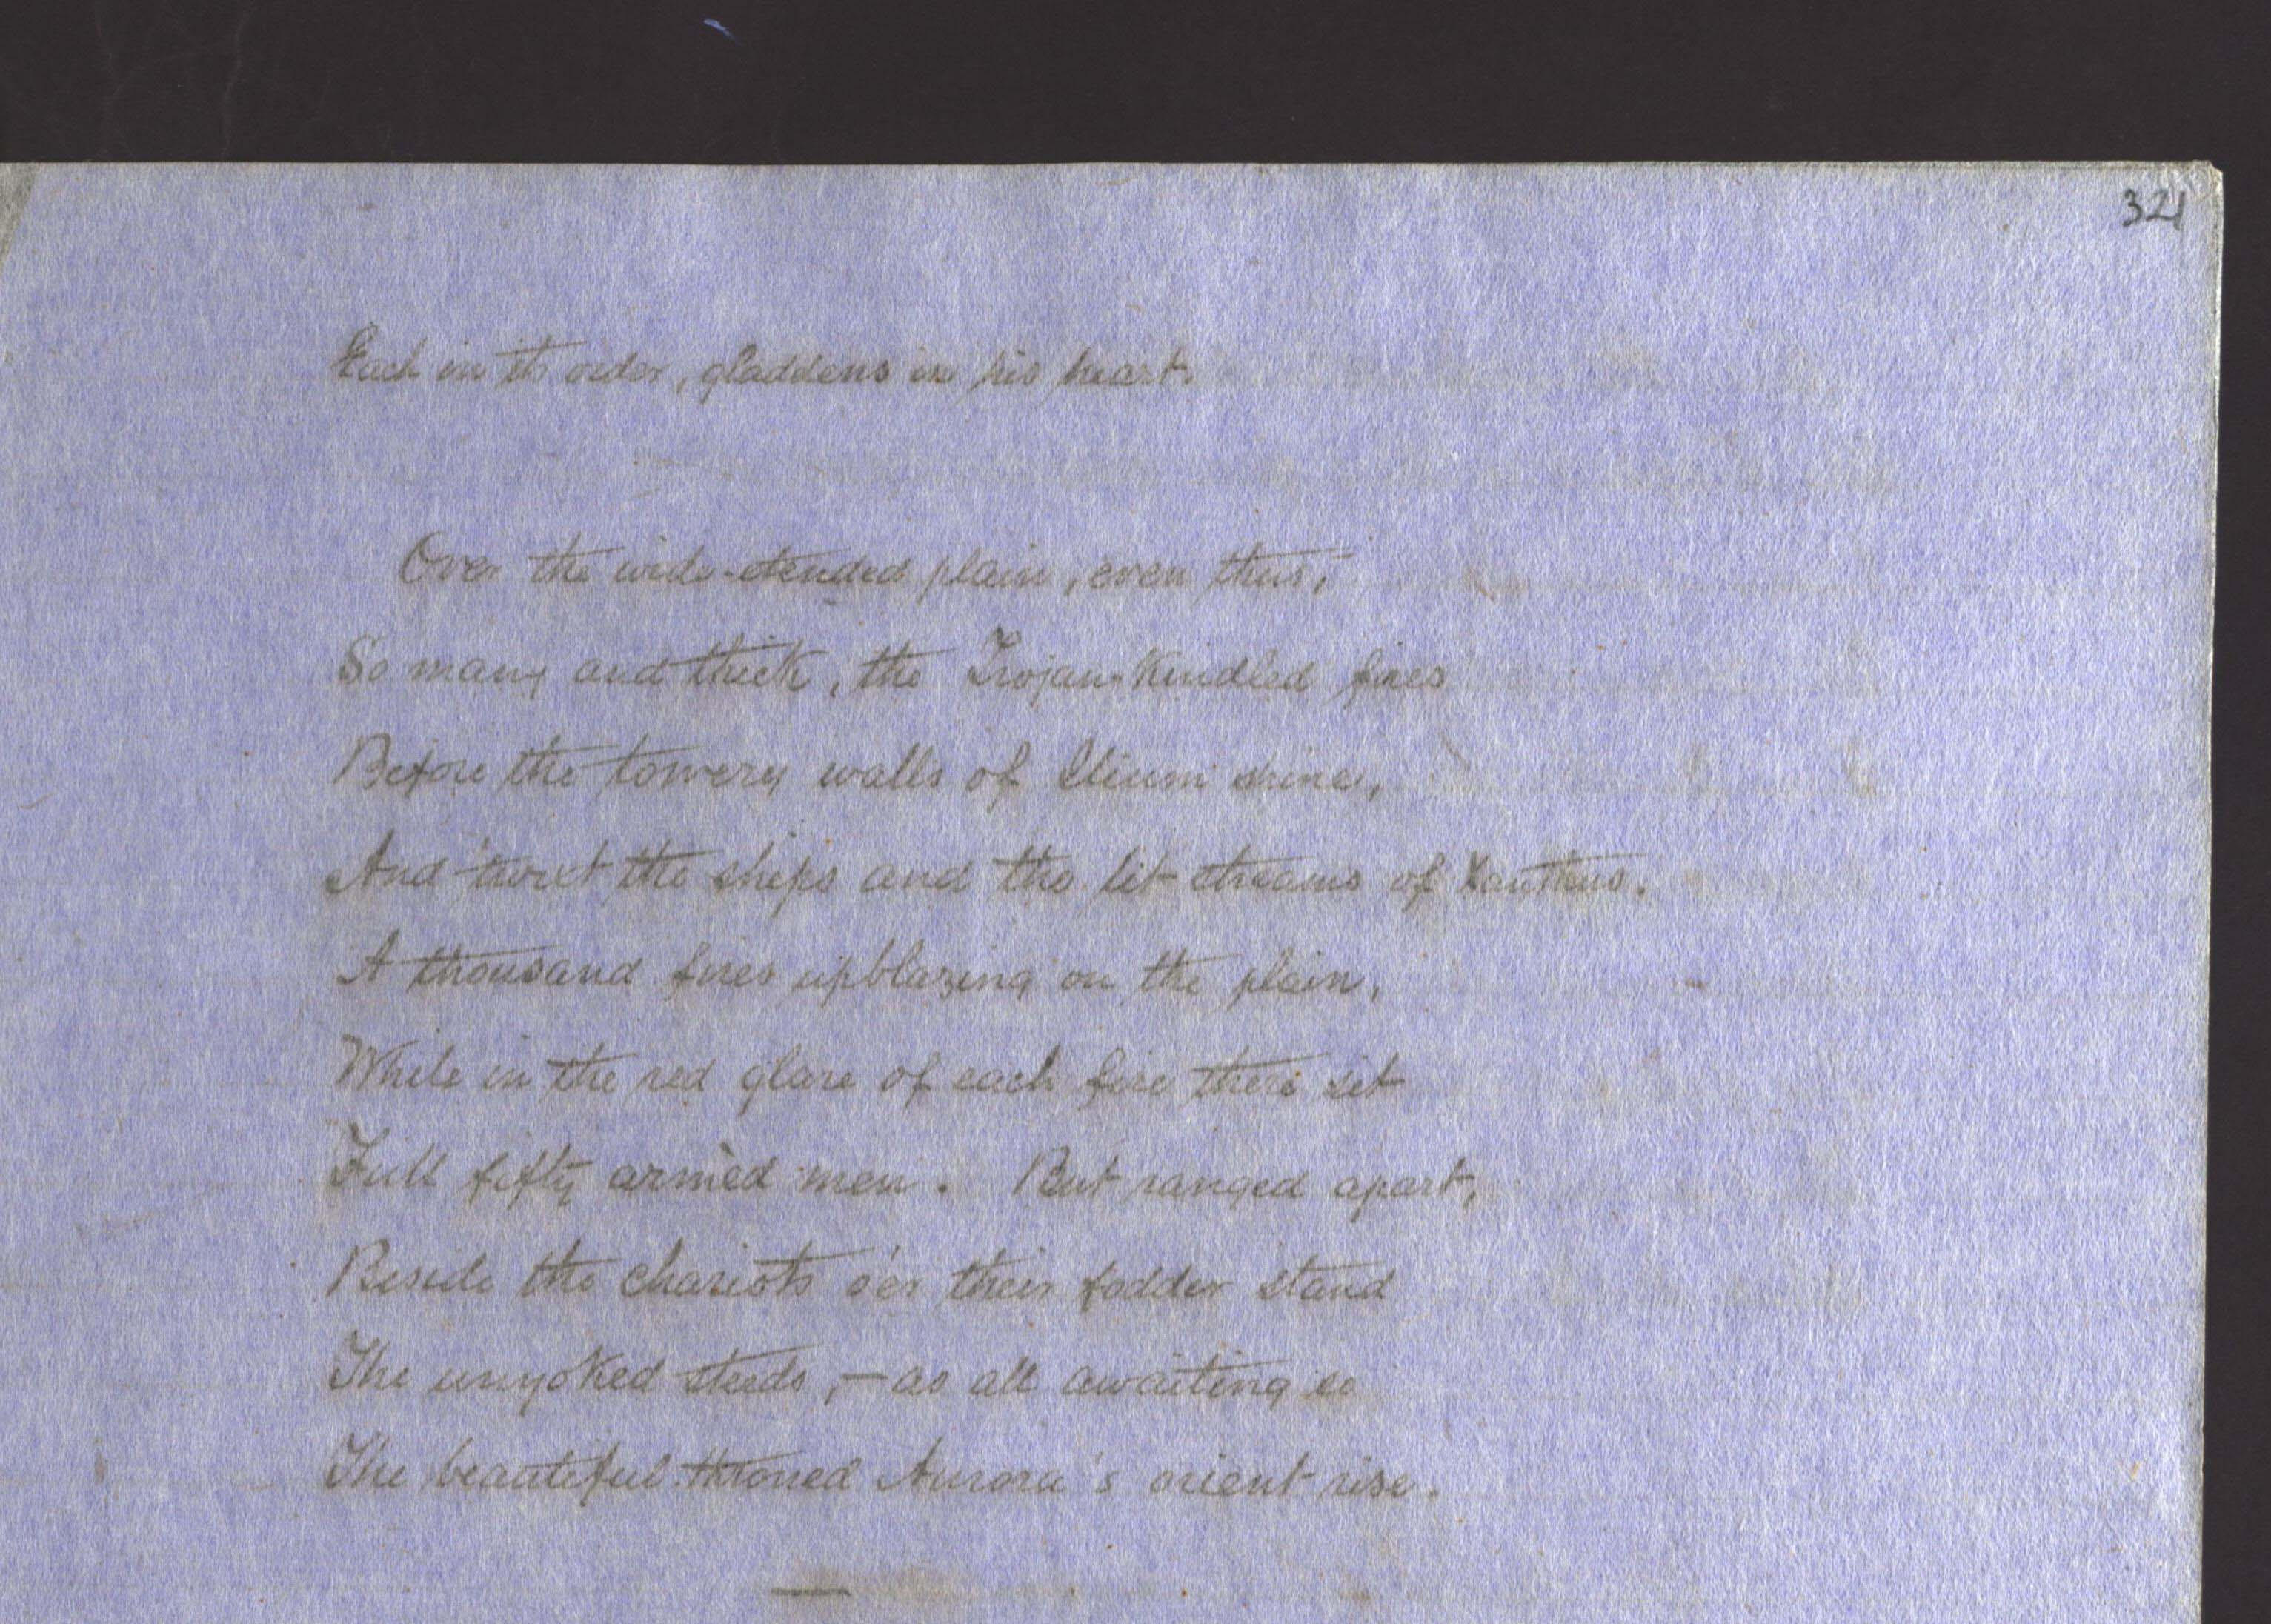 321
Each in its order, gladdens in his heart.
Over the wide-tended plain, even thus,
So many and thick, the Trojan-kindled fires
Before the towery walls of Ilium shine,
And 'twixt the ships and the lit streams of Xanthus.
A thousand fires upblazing on the plain,
While in the red glare of each fire there sit
Full fifty armed men. But ranged apart,
Beside the chariots o'er their fodder stand
The unyoked steeds,—as all awaiting so
The beautiful-throned Aurora's orient rise.